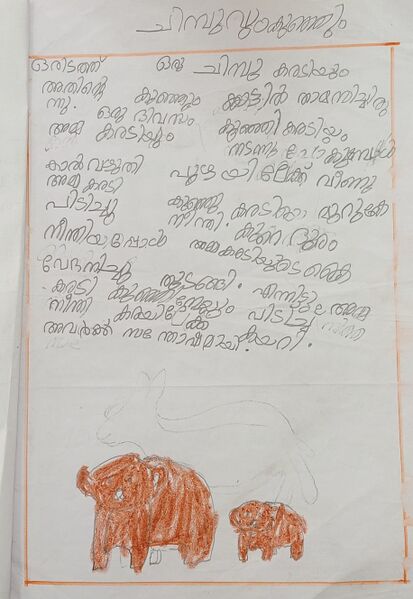 ചിമ്പുവും കുഞ്ഞും
ഒരിടത്ത് ഒരു ചിമ്പു കരടിയും
അതിന്റെ കുഞ്ഞും കാട്ടിൽ താമസിച്ചിരു
ന്നു. ഒരു ദിവസം കുഞ്ഞി കരടിയും
അമ്മ കരടിയും നടന്നു പോകുമ്പോൾ
കാൽ വഴുതി പുഴയിലേക്ക് വീണു
അമ്മ കരടി കുഞ്ഞു കരടിക്കാ മുറുകേ
പിടിച്ചു നീന്തി. കുറെ ദൂരം
നീന്തിയപ്പോൾ അമ്മകരടിയുടെ കൈ
വേദനിച്ചു തുടങ്ങി. എന്നിട്ടും അമ്മ
കരടി കുഞ്ഞിനേയും പിടിച്ച്
നീന്തി കരയിലേക്ക് കയറി.
അവർക്ക് സന്തോഷമായി.